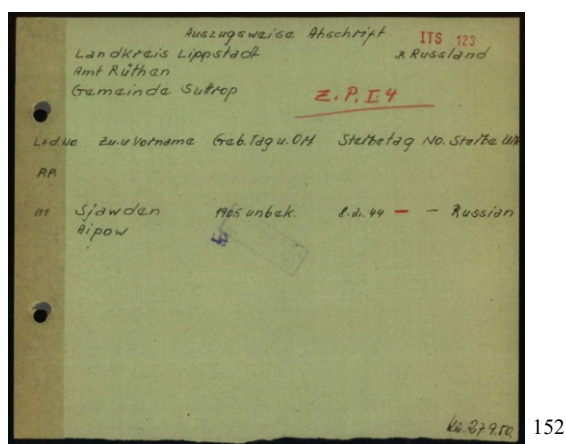 Auszugsweise Abschrift
ITS 123
Landkreis Lippstadt
Russland
Amt Rüthen
Gemeinde Suttrop
Z.P.I.4
Lfd.No Zu.u Vorname Geb.Tag u. Ort Sterbetag No. Sterbe Urk
111 Sjawden 1905 unbek. 8.2.44 — — Russian
Aipow
27.9.50
152